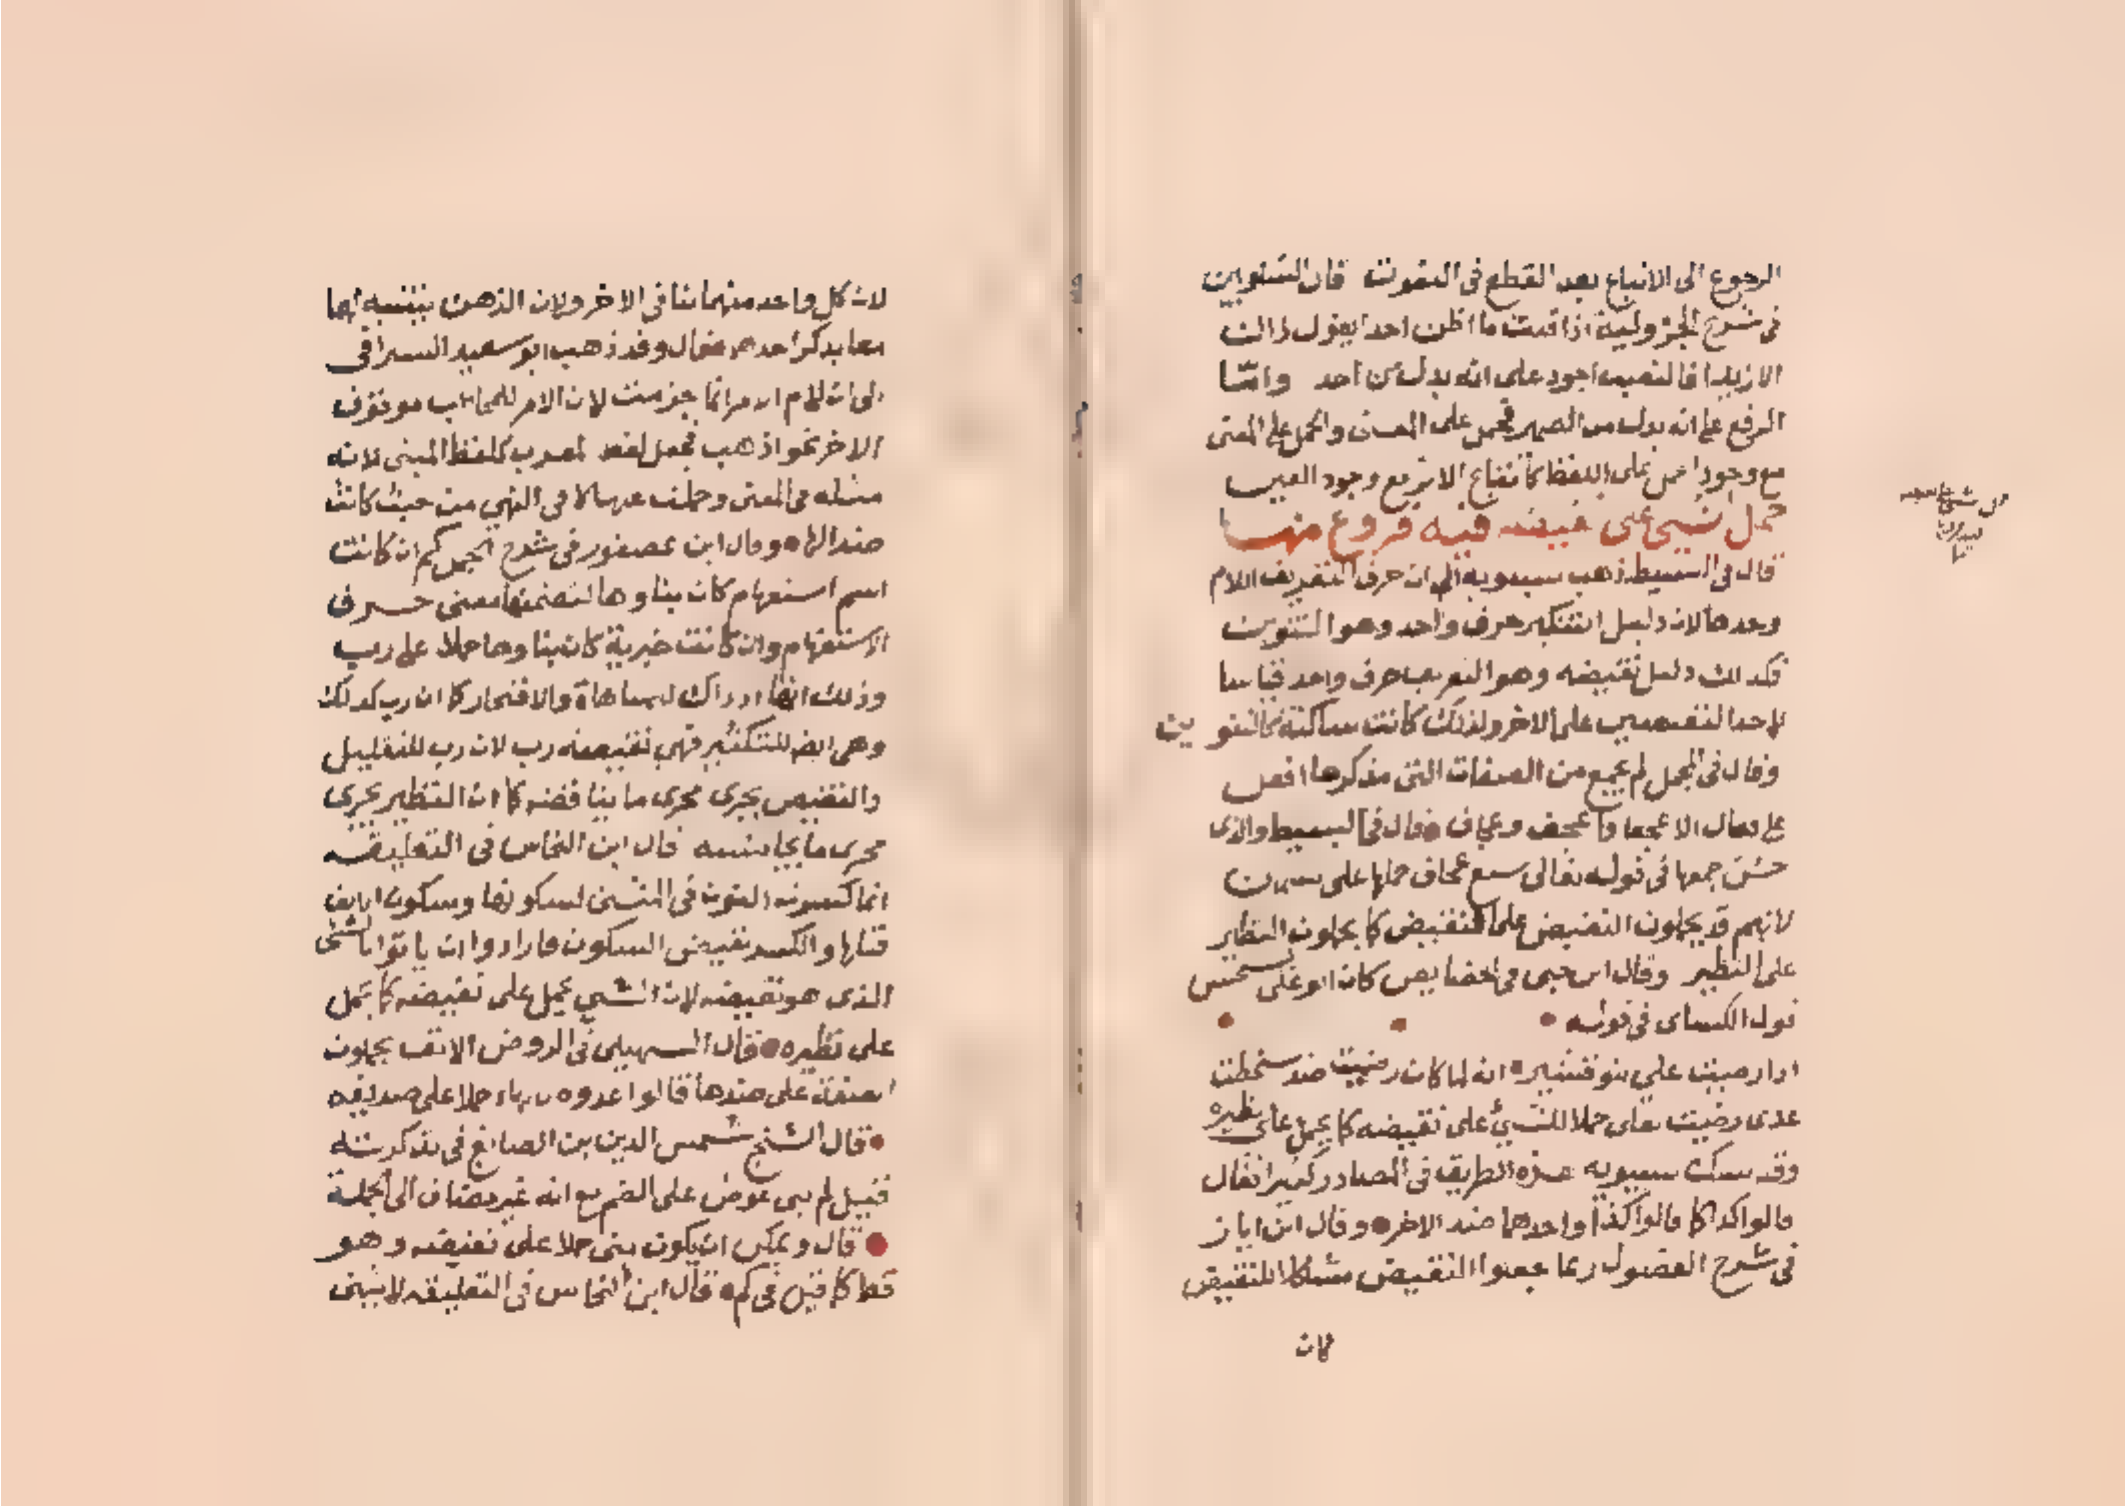 الرجوع الى الاتباع بعد القطع فى النعوت قال الشلوبين
فى شرح الجزولية اذا قلت ما اظن احدا يقول ذالك
الا زيدا فالنصب اجود على انه بدل من احد واما
الرفع على انه بدل من الضمير فحمل على المعنى والحمل على المعنى
مع وجود الحمل على اللفظ
حمل الشى على نقيضه فيه فروع منها
قال فى البسيط ذهب سيبويه الى ان حرف التعريف اللام
وحدها لان دليل التنكير حرف واحد وهو التنوين
فكذلك دليل نقيضه وهو التعريف حرف واحد قياسا
لاحد النقيضين على الاخر ولذلك كانت ساكنة كالتنوين
وقال فى المجمل لم يجمع من الصفات التى مذكرها افعل
على فعال الا عجفا واعجف وعجاف قال فى البسيط والذى
حسن جمعها فى قوله تعالى سبع عجاف حملها على سمان
لانهم قد يحملون النقيض على النقيض كما يحملون النظير
على النظير وقال ابن جنى فى الخصايص كان ابو على يستحسن
قول الكساى فى قوله
اذا رضيت على بنو قشير انه لما كان رضيت ضد سخطت
عدى رضيت بعلى حملا للشىء على نقيضه كما يحمل على نظيره
وقد سلك سيبويه هذه الطريق فى المصادر كثيرا فقال
قالوا كذا كما قالوا كذا واحدهما ضد الاخر وقال ابن اياز
فى شرح الفصول ربما جعلوا النقيض مشكلا للنقيض
لان
لان كل واحد منهما ينافى الاخر ولان الذهن يتنبه لهما
معا بذكر احدهما قال وقد ذهب ابو سعيد السيرافى
الى ان لام الامر انما جزمت لان الامر للمخاطب موقوف
الاخر نحو اذهب فجعل لفظ المعرب كلفظ المبنى لانه
مثله فى المعنى وحملت عليها لا فى النهى من حيث كانت
ضدا لها وقال ابن عصفور فى شرح الجمل كم ان كانت
اسم استفهام كان بناوها لتضمنها معنى حرف
الاستفهام وان كانت خبرية كان بناوها حملا على رب
وذلك انها اذ ذاك للمباهاة والافتخار كما ان رب كذلك
وهى ايضا للتكثير فهى نقيضه رب لان رب للتقليل
والنقيض يجرى مجرى ما يناقضه كما ان النظير يجرى
مجرى ما يجانسه قال ابن النحاس فى التعليقة
انما كسرت النون فى المثنى لسكونها وسكون الالف
قبلها والكسر نقيض السكون فارادوا ان ياتوا بالشى
الذى هو نقيضه لان الشى يحمل على نقيضه كما يحمل
على نظيره قال السهيلى فى الروض الانف يحملون
الصفة على ضدها قالوا عدوه بالهاء حملا على صديقه
قال الشيخ شمس الدين بن الصايغ فى تذكرته
قيل لم بنى عوض على الضم مع انه غير مضاف الى الجملة
قال ويمكن ان يكون بنى حملا على نقيضه وهو
قط كما قيل فى كم قال ابن النحاس فى التعليقه لا يثنى